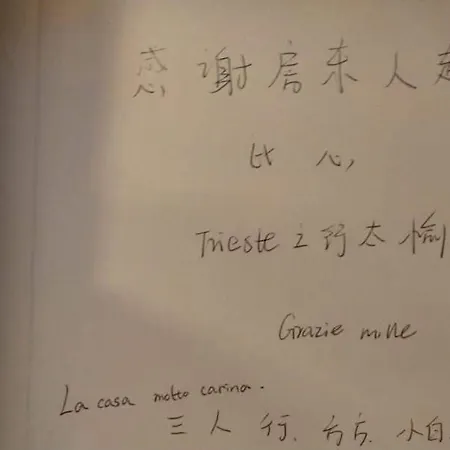 感谢房东人超
比心,
Trieste之行太愉
Grazie mille
La casa molto carina.
三人行.方方.小白